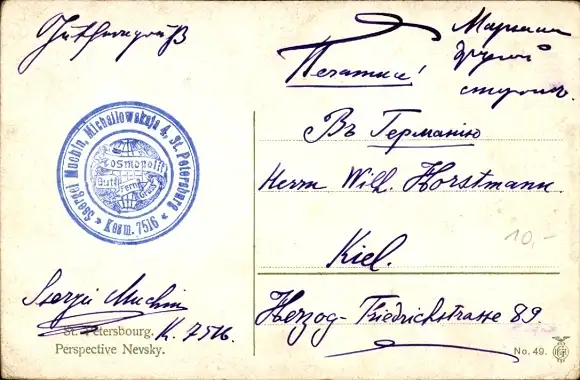 Gutferngruß
Марки на
другой
сторонѣ.
Печатное!
Въ Германiю
Herrn Wilh. Horstmann.
Kiel.
Herzog-Friedrichstrasse 89.
10,-
Seergei Muchin, Michailowskaja 4, St. Petersburg
Kosmopolit
Gut Fern Gruss
* Kosm. 7516 *
Sergei Muchin
K. 7516.
St. Petersbourg.
Perspective Nevsky.
No. 49.